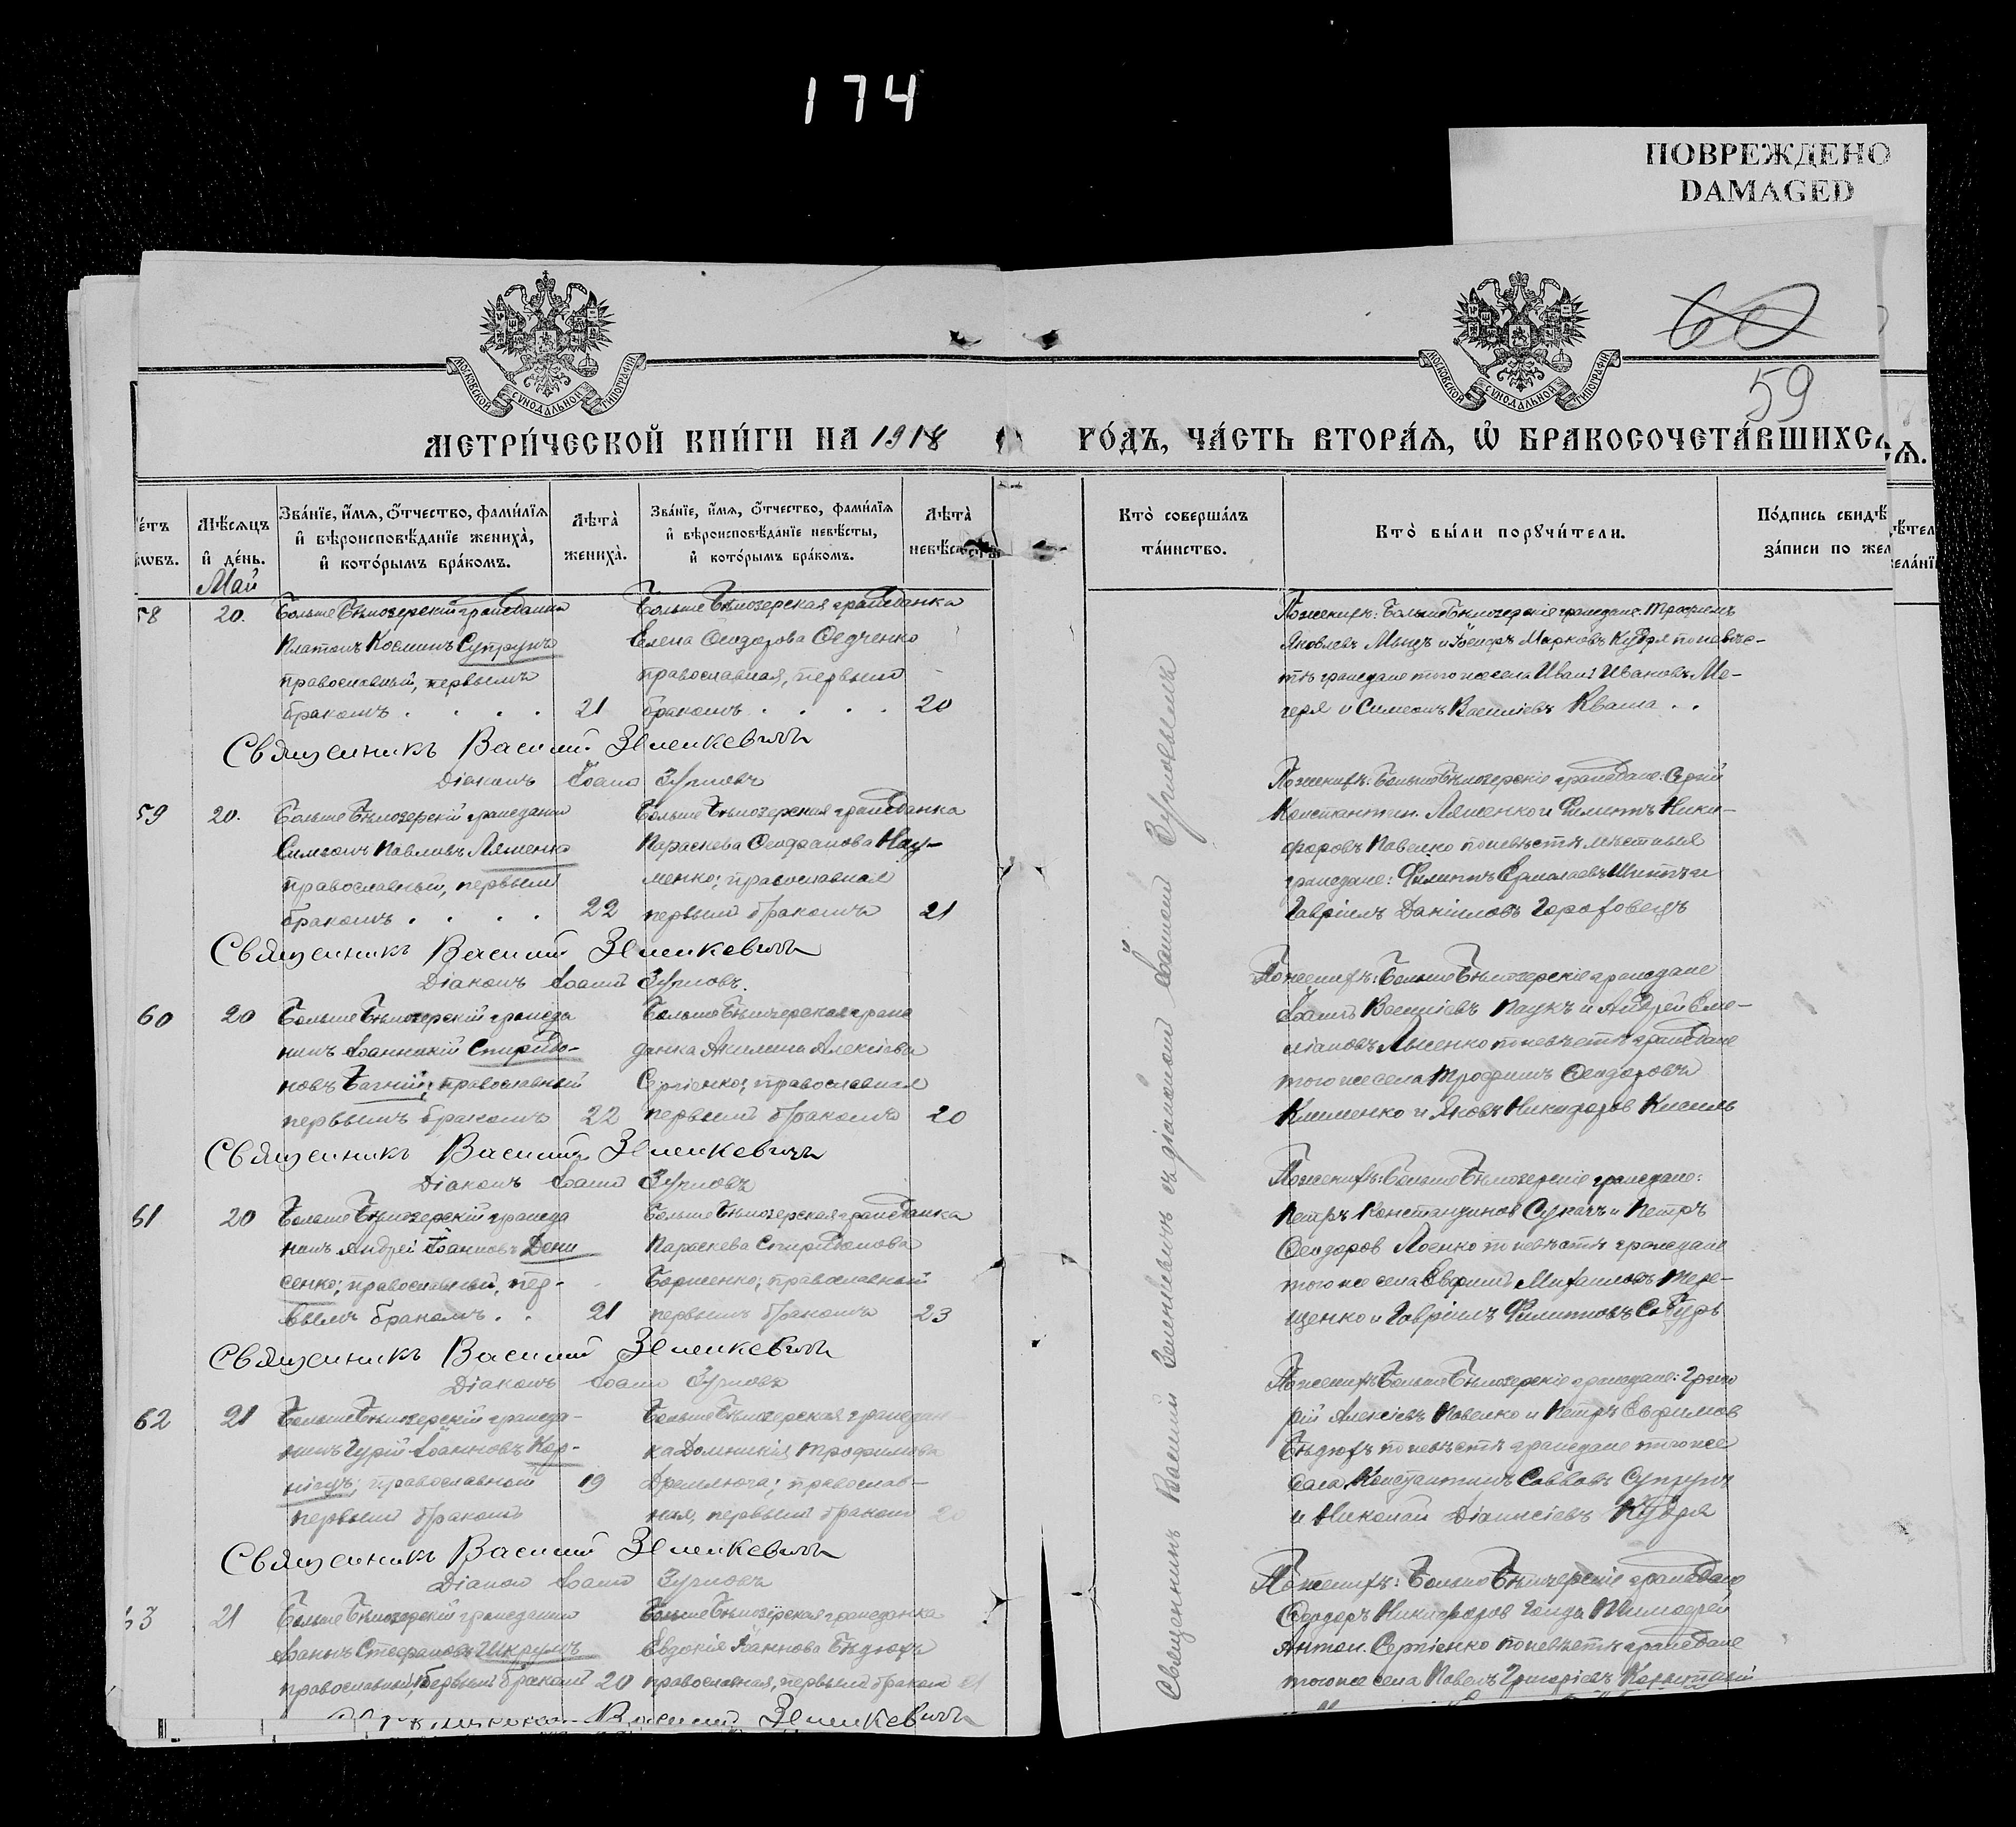 174
ПОВРЕЖДЕНО
DAMAGED
60
59
МОСКОВСКОЙ СУНОДАЛЬНОЙ ТИПОГРАФІИ
МОСКОВСКОЙ СУНОДАЛЬНОЙ ТИПОГРАФІИ
МЕТРИ́ЧЕСКОЙ КНИ́ГИ НА 1918 ГО́ДЪ, ЧА́СТЬ ВТОРА́Я, Ѿ БРАКОСОЧЕТА́ВШИХСЯ.
Мѣ́сяцъ и де́нь.
Зва́нїе, и́мя, о́тчество, фами́лїя и вѣроисповѣ́данїе жениха̀, и кото́рымъ бра́комъ.
Лѣта̀ жениха̀.
Зва́нїе, и́мя, о́тчество, фами́лїя и вѣроисповѣ́данїе невѣ́сты, и кото́рымъ бра́комъ.
Лѣта̀ невѣ́сты
Кто̀ соверша́лъ та́инство.
Кто̀ бы́ли порꙋчи́тели.
По́дпись свидѣ́
за́писи по жел
Май
58
20.
Больше Бѣлозерскій гражданинъ
Платонъ Косминъ Супрунъ
православный, первымъ
бракомъ . . . .
21
Больше Бѣлозерская гражданка
Елена Ѳеодорова Ѳедченко
православная, первымъ
бракомъ . . . .
20
По женихѣ: Больше Бѣлозерскіе граждане: Трофимъ
Яковлевъ и Іосифъ Марковъ Кудря по невѣс-
тѣ граждане того же села Иванъ Ивановъ Ме-
геря и Симеонъ Василіевъ Кваша . .
Священникъ Василий Зеленкевичъ
Діаконъ Іоаннъ Зурновъ
59
20.
Больше Бѣлозерскій гражданинъ
Симеонъ Павловъ Ляшенко
православный, первымъ
бракомъ . . . .
22
Больше Бѣлозерская гражданка
Параскева Ѳеофанова Нау-
менко; православная
первымъ бракомъ
21
По женихѣ: Больше Бѣлозерскіе граждане: Сергій
Константин. Ляшенко и Филиппъ Ники-
форовъ Павелко по невѣстѣ
граждане: Филиппъ Ермолаевъ и
Гавріилъ Даніиловъ Гороховецъ
Священникъ Василий Зеленкевичъ
Діаконъ Іоаннъ Зурновъ.
60
20
Больше Бѣлозерскій гражда
нинъ Іоанникій Спиридо-
новъ Багній; православный
первымъ бракомъ
22
Больше Бѣлозерская граж
данка Акилина Алексіева
Сергіенко; православная
первымъ бракомъ
20
По женихѣ: Больше Бѣлозерскіе граждане
Іоаннъ Василіевъ Паукъ и Андрей Еме-
ліановъ Лысенко по невѣстѣ граждане
того же села Трофимъ Ѳеодоровъ
Клименко и Яковъ Никифоров Кисиль
Священникъ Василий Зеленкевичъ
Діаконъ Іоаннъ Зурновъ
61
20
Больше Бѣлозерскій гражда
нинъ Андрей Іоанновъ Дени
сенко; православный, пер-
вымъ бракомъ . .
21
Больше Бѣлозерская гражданка
Параскева Спиридонова
православный
первымъ бракомъ
23
По женихѣ: Больше Бѣлозерскіе граждане:
Петръ Константинов Сукачъ и Петръ
Ѳеодоров по невѣстѣ граждане
того же села Евфимій Михаиловъ Тере-
щенко и Гавріилъ Филипповъ
Священникъ Василий Зеленкевичъ
Діаконъ Іоаннъ Зурновъ
62
21
Больше Бѣлозерскій гражда-
нинъ Гурій Іоанновъ Кор-
ніецъ; православный
первымъ бракомъ
19
Больше Бѣлозерская граждан
ка Домникія Трофимова
православ-
ная, первымъ бракомъ
20
По женихѣ Больше Бѣлозерскіе граждане: Григо
рій Алексіевъ Павелко и Петръ Евфимов
Бѣдюхъ по невѣстѣ граждане того же
села Константинъ Саввовъ Супрунъ
и Николай Діонисіевъ Кудря
Священникъ Василий Зеленкевичъ
Діаконъ Іоаннъ Зурновъ
63
21
Больше Бѣлозерскій гражданинъ
Іоаннъ Стефановъ Шкрумъ
православный, первымъ бракомъ
20
Больше Бѣлозерская гражданка
Евдокія Іоаннова Бѣдюхъ
православная, первымъ бракомъ
21
По женихѣ: Больше Бѣлозерскіе граждане
Ѳеодоръ Никифоров Тимофей
Антон. Сергіенко по невѣстѣ граждане
того же села Павелъ Григоріевъ
Василий Зеленкевичъ
Священникъ Василій Зеленкевичъ съ діакономъ Іоанномъ Зурновымъ